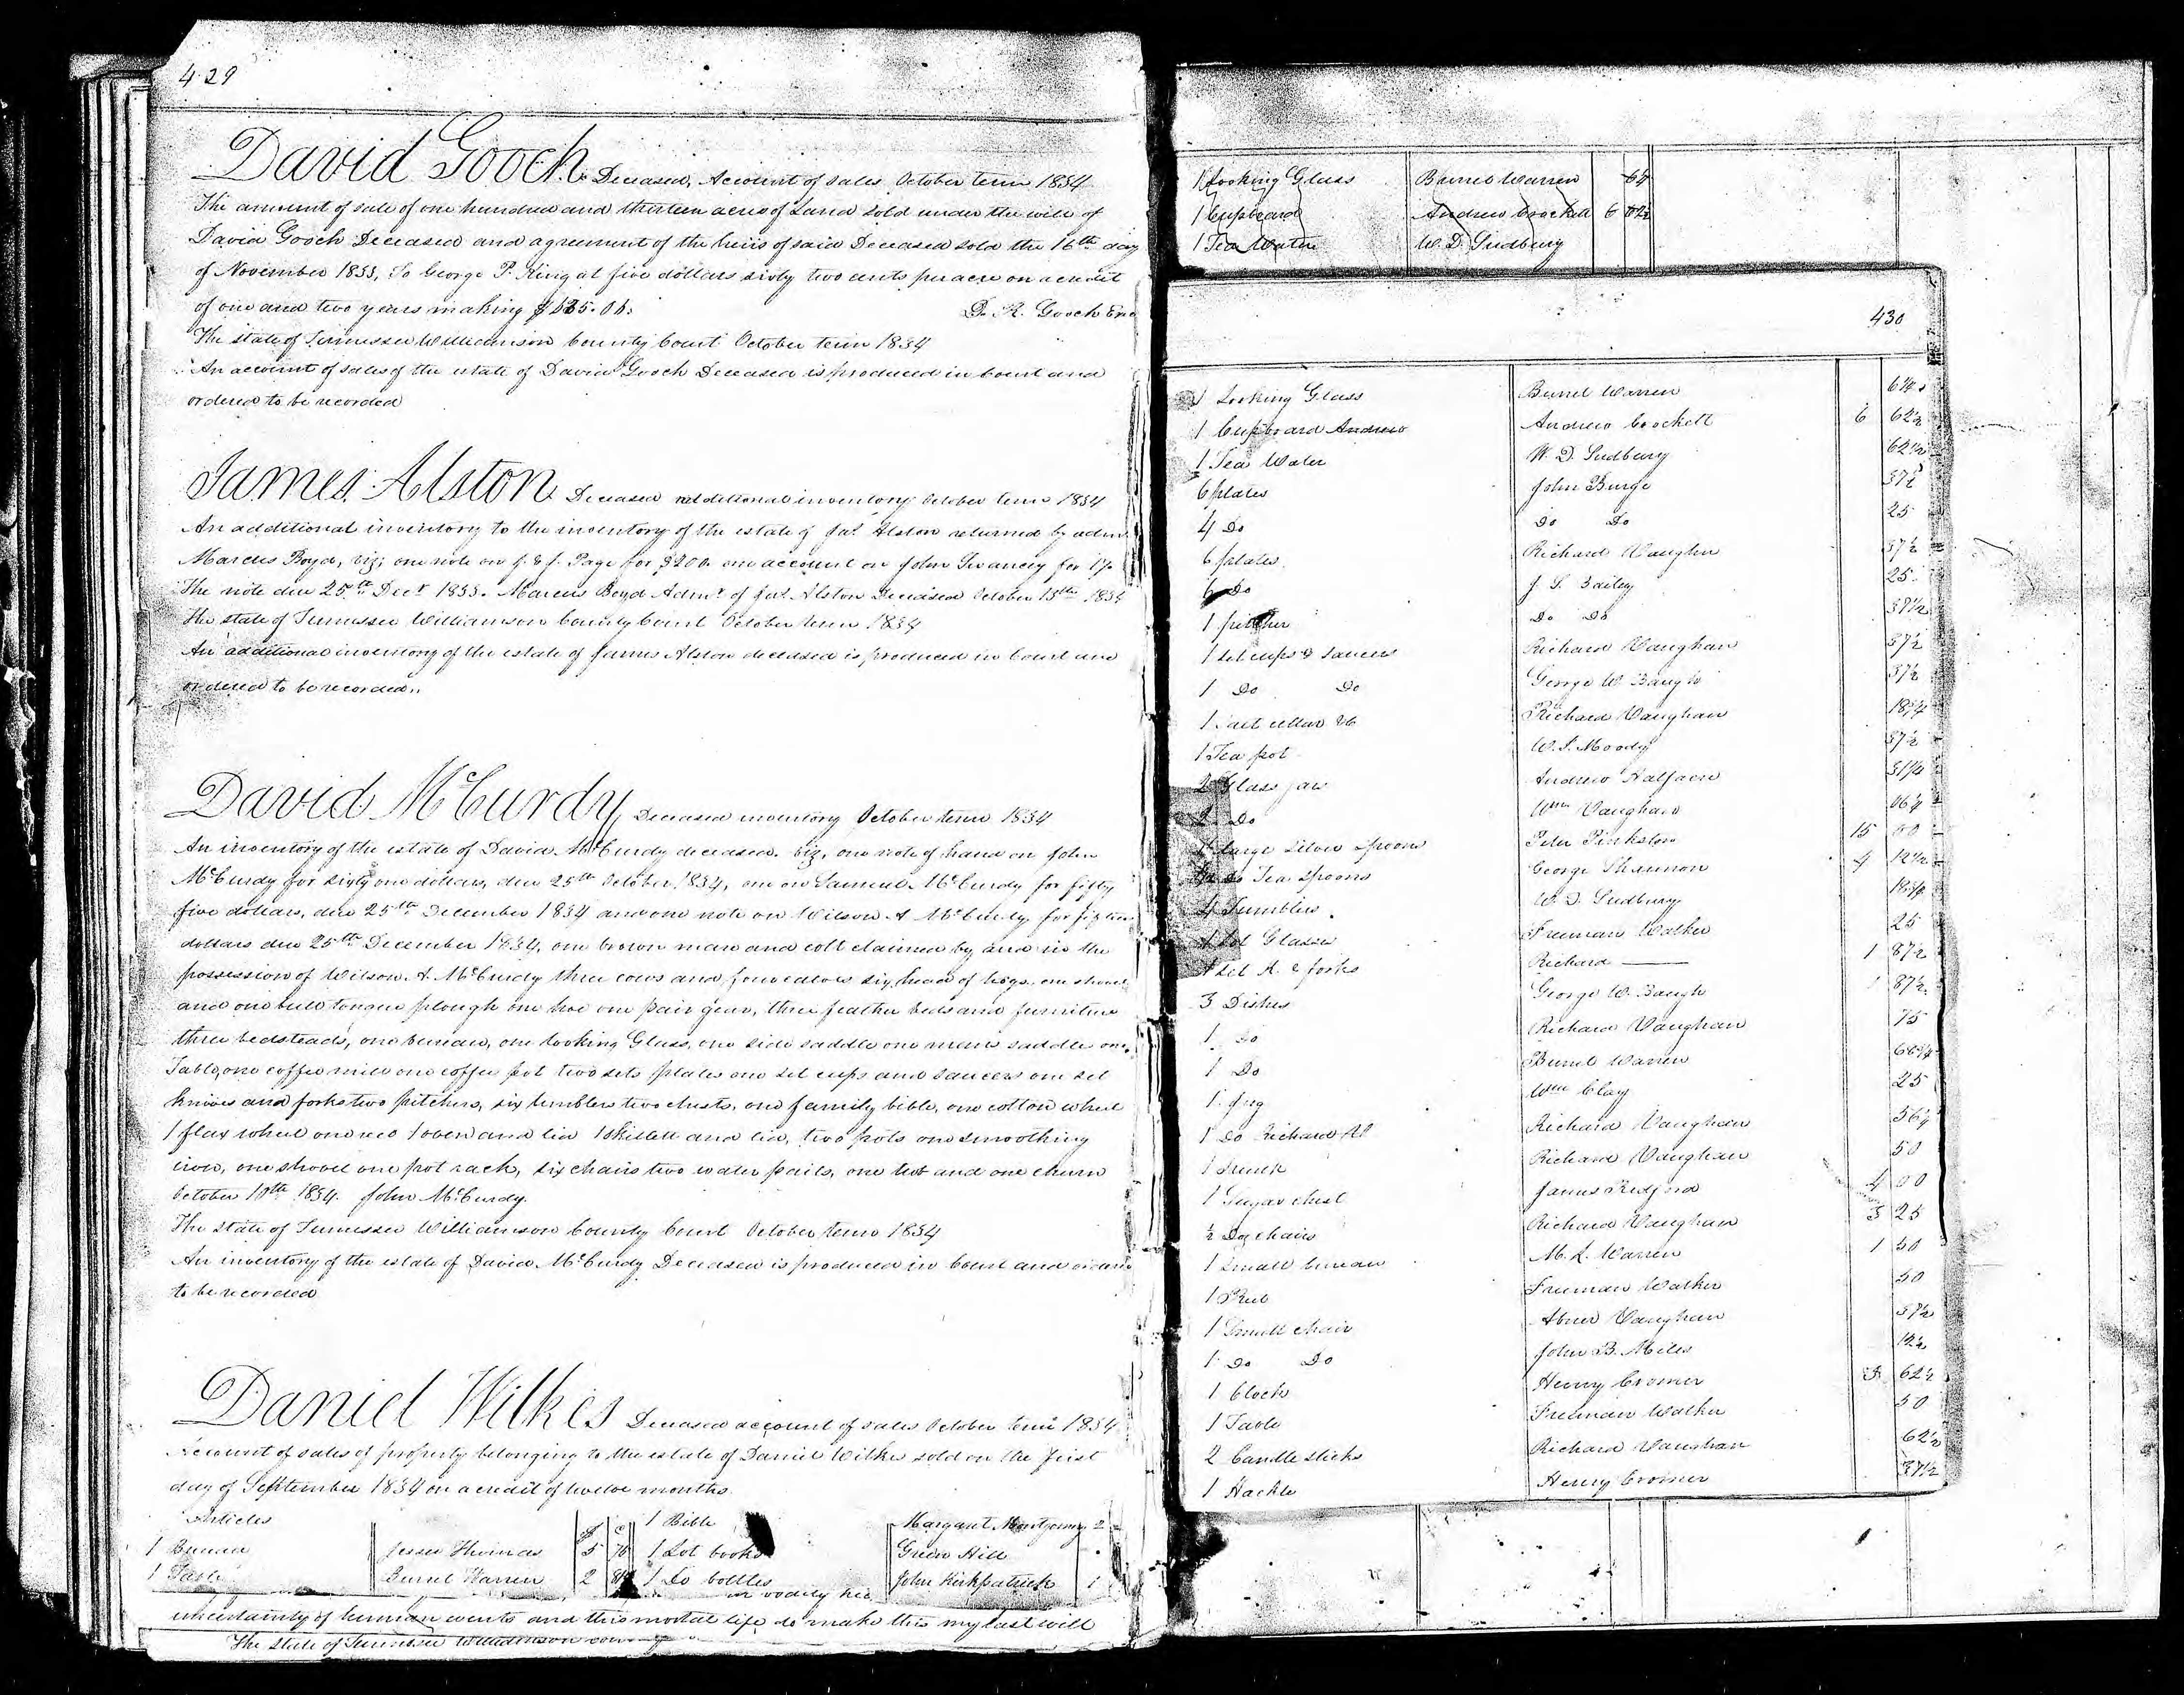 429
David Gooch Deceased, Account of sales October term 1834
The amount of sale of one hundred and thirteen acres of Land sold under the will of
David Gooch Deceased and agreement of the heirs of said Deceased sold the 16th day
of November 1833, To George P. King at five dollars sixty two cents per acre on a credit
of one and two years making $635.06. D. R. Gooch Exr
The state of Tennessee Williamson County Court October term 1834
An account of sales of the estate of David Gooch Deceased is produced in Court and
ordered to be recorded
James Alston Deceased additional inventory October term 1834
An additional inventory to the inventory of the estate of Jas. Alston returned by admr
Marcus Boyd, viz; one note on J. & J. Page for $200. one account on John Swancy for
The note due 25th Decr 1833. Marcus Boyd Admr of Jas. Alston Deceased October 13th 1834
The state of Tennessee Williamson County Court October term 1834
An additional inventory of the estate of James Alston deceased is produced in Court and
ordered to be recorded.
David McCurdy Deceased inventory October term 1834
An inventory of the estate of David McCurdy deceased. viz, one note of hand on John
McCurdy for sixty one dollars, due 25th October 1834, one on Samuel McCurdy for fifty
five dollars, due 25th December 1834 and one note on Wilson A McCurdy for
dollars due 25th December 1834, one brown mare and colt claimed by and in the
possession of Wilson A. McCurdy three cows and four calves six head of hogs, one shovel
and one bull tongue plough one hoe one pair gear, three feather beds and furniture
three bedsteads, one bureau, one looking Glass, one side saddle one mans saddle one
Table, one coffee mill one coffee pot two sets plates one set cups and saucers one set
knives and forks two pitchers, six tumblers two chests, one family bible, one cotton wheel
1 flax wheel one reel 1 oven and lid 1 skillet and lid, two pots one smoothing
iron, one shovel one pot rack, six chairs two water pails, one tub and one churn
October 10th 1834. John McCurdy.
The state of Tennessee Williamson County Court October term 1834
An inventory of the estate of David McCurdy Deceased is produced in Court and ordered
to be recorded
Daniel Wilkes Deceased account of sales October term 1834
Account of sales of property belonging to the estate of Daniel Wilkes sold on the first
day of September 1834 on a credit of twelve months.
Articles $ c 1 Bible Margaret Montgomery 2
1 Bureau Jesse Thomas 5 76 1 Lot books Green Hill
1 Table Burrel Warren 2 1 Do bottles John Kirkpatrick 1
uncertainty of human events and this mortal life do make this my last will
The state of Tennessee Williamson
1 Looking Glass Burrel Warren 64
1 Cupboard Andrew Crockett 6 62½
1 Tea Water W. D. Sudbury
430
1 Looking Glass Burrel Warren
1 Cupboard Andrew Andrew Crockett 6 62½
1 Tea Water W. D. Sudbury 62½
6 plates John Burge 37½
4 Do Do Do 25
6 plates Richard Vaughn 37½
6 Do J. S. Bailey 25
1 pitcher Do Do 37½
1 set cups & saucers Richard Vaughan 37½
1 Do Do George W. Baugh 37½
1 salt cellar &c Richard Vaughan 18¾
1 Tea pot W. S. Moody 37½
2 Glass jars Andrew Halfacre 31¼
2 Do Wm Vaughan 06¼
large silver spoons Peter Pinkston 15 00
Tea spoons George Shannon 4 12½
4 Tumblers W. D. Sudbury 18¾
1 Lot Glasses Freeman Walker 25
1 set K. & forks Richard — 1 87½
3 Dishes George W. Baugh 1 87½
1 Do Richard Vaughan 75
1 Do Burrel Warren 68¾
1 Jug Wm Clay 25
1 Do Richard Richard Vaughan 56¼
1 Trunk Richard Vaughan 50
1 Sugar chest James Redford 4 00
½ Doz chairs Richard Vaughan 3 25
1 small bureau M. L. Warren 1 50
1 Reel Freeman Walker 50
1 Small chair Abner Vaughan 37½
1 Do Do John B. Miles 12½
1 Clock Henry Cromer 3 62½
1 Table Freeman Walker 50
2 Candle sticks Richard Vaughan 62½
1 Hackle Henry Cromer 37½